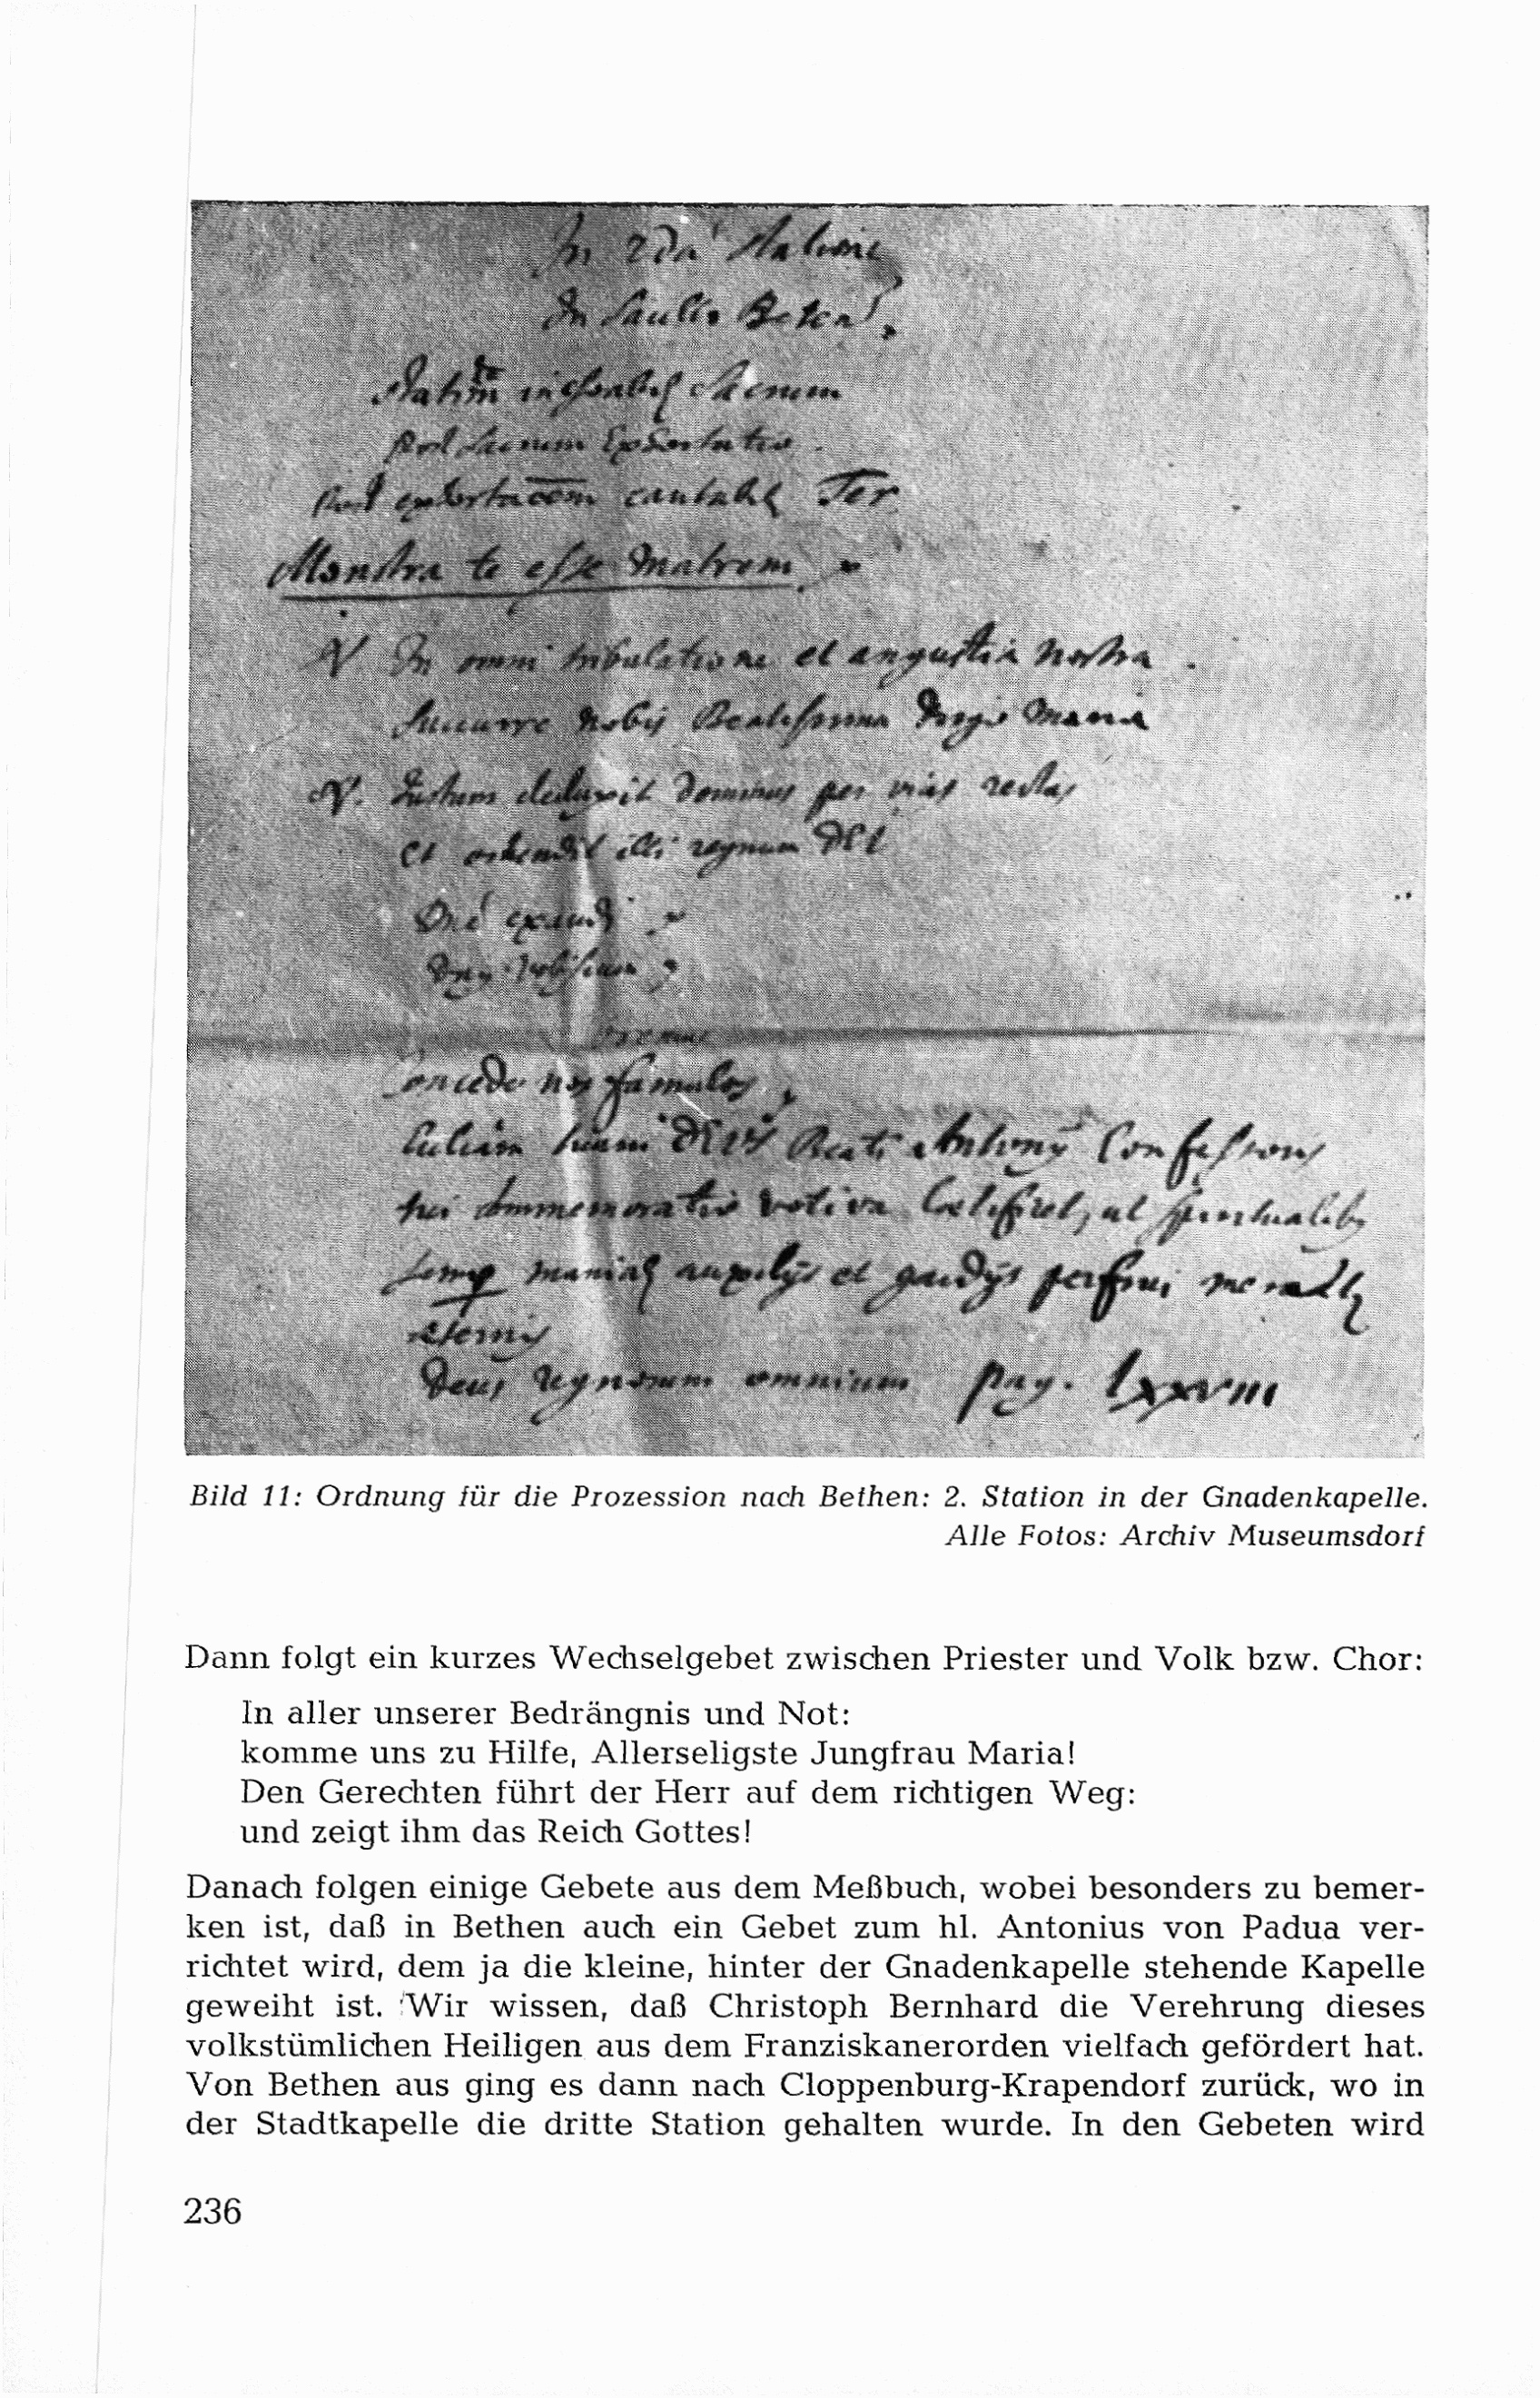 In 2da statione
In Beten
Statim
Post Exhortatio
Post exhortacõem cantabit Ter
Monstra te esse Matrem
V In omni tribulatione et angustia nostra
Succurre nobis Beatissima Virgo Maria
V. Justum deduxit Dominus per vias rectas
et ostendit illi regnum DEI
Dne exaudi
Dnus vobiscum
Oremus
Concede nos famulos
tuam DEUS Beati Antonij Confessoris
tui Commemoratio votiva Laetificet, ut spiritualib,
semp auxilijs et gaudijs perfrui
aeternis
Deus regnorum omnium pag. lxxviii
Bild 11: Ordnung für die Prozession nach Bethen: 2. Station in der Gnadenkapelle.
Alle Fotos: Archiv Museumsdorf
Dann folgt ein kurzes Wechselgebet zwischen Priester und Volk bzw. Chor:
In aller unserer Bedrängnis und Not:
komme uns zu Hilfe, Allerseligste Jungfrau Maria!
Den Gerechten führt der Herr auf dem richtigen Weg:
und zeigt ihm das Reich Gottes!
Danach folgen einige Gebete aus dem Meßbuch, wobei besonders zu bemer-
ken ist, daß in Bethen auch ein Gebet zum hl. Antonius von Padua ver-
richtet wird, dem ja die kleine, hinter der Gnadenkapelle stehende Kapelle
geweiht ist. Wir wissen, daß Christoph Bernhard die Verehrung dieses
volkstümlichen Heiligen aus dem Franziskanerorden vielfach gefördert hat.
Von Bethen aus ging es dann nach Cloppenburg-Krapendorf zurück, wo in
der Stadtkapelle die dritte Station gehalten wurde. In den Gebeten wird
236